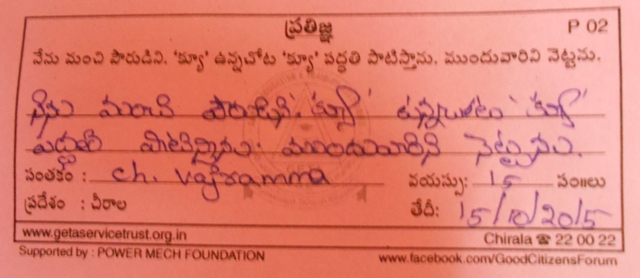 ప్రతిజ్ఞ P 02
నేను మంచి పౌరుడిని. 'క్యూ' ఉన్నచోట 'క్యూ' పద్ధతి పాటిస్తాను. ముందువారిని నెట్టను.
నేను మంచి పౌరుడిని 'క్యూ' ఉన్నచోట 'క్యూ'
పద్ధతి పాటిస్తాను. ముందువారిని నెట్టను.
సంతకం : ch. vajramma వయస్సు: 15 సం॥లు
ప్రదేశం : చీరాల తేదీ: 15/10/2015
www.getaservicetrust.org.in Chirala ☎ 22 00 22
Supported by : POWER MECH FOUNDATION www.facebook.com/GoodCitizensForum